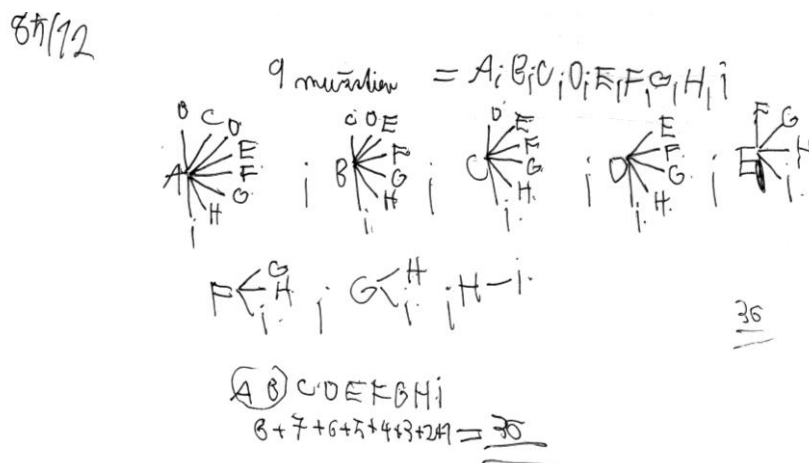 8π/12
9 mužstiev = A, B, C, D, E, F, G, H, i
A B C D E F G H i ; B C D E F G H i ; C D E F G H i ; D E F G H i ; E F G H i
F G H i ; G H i ; H – i
36
A B C D E F G H i
8+7+6+5+4+3+2+1 = 36